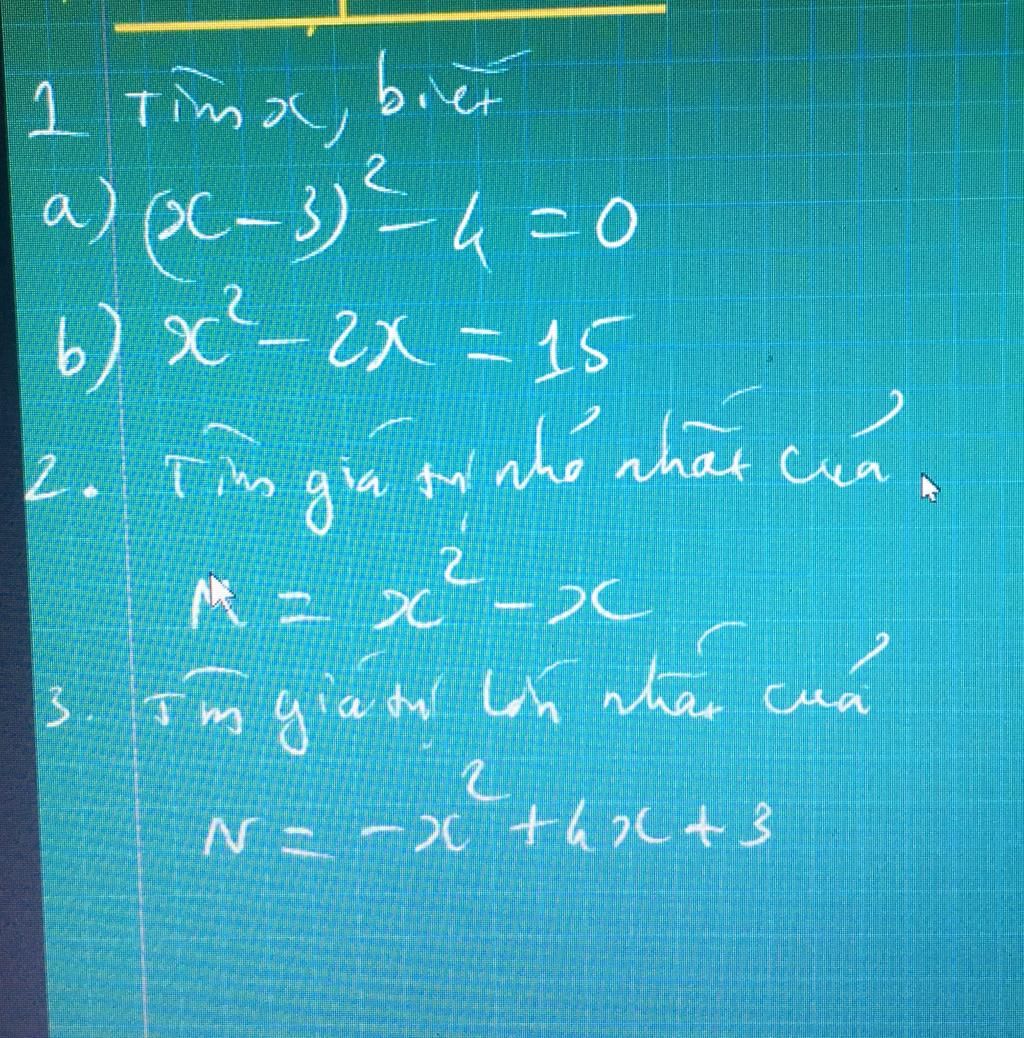 1 Tìm x, biết
a) (x-3)² - 4 = 0
b) x² - 2x = 15
2. Tìm giá trị nhỏ nhất của
M = x² - x
3. Tìm giá trị lớn nhất của
N = -x² + 4x + 3